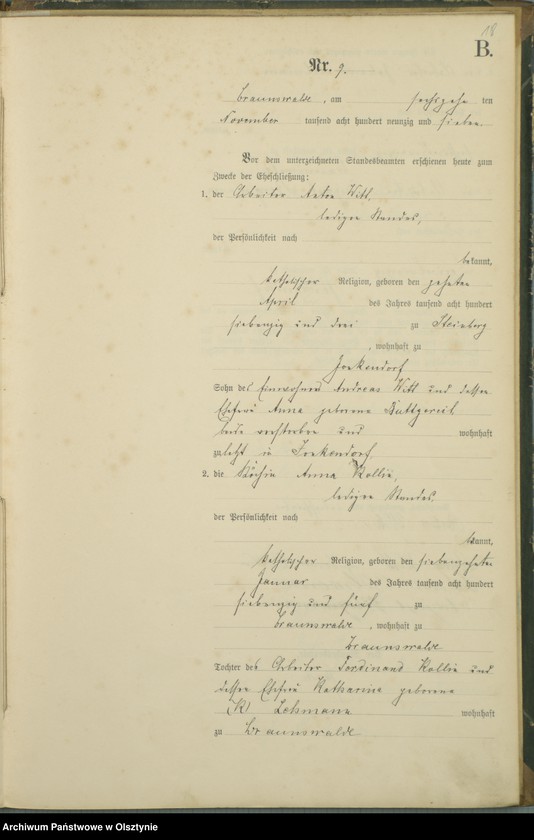 18
B.
Nr. 9.
Braunswalde, am sechszehn ten
November tausend acht hundert neunzig und sieben.
Vor dem unterzeichneten Standesbeamten erschienen heute zum
Zwecke der Eheschließung:
1. der Arbeiter Anton Witt,
ledigen Standes,
der Persönlichkeit nach
bekannt,
katholischer Religion, geboren den zehnten
April des Jahres tausend acht hundert
siebenzig und drei zu Steinberg
, wohnhaft zu
Jonkendorf
Sohn des Einwohners Andreas Witt und dessen
Ehefrau Anna geborene
beide verstorben und wohnhaft
zuletzt in Jonkendorf
2. die Köchin Anna Kollin,
ledigen Standes,
der Persönlichkeit nach
bekannt,
katholischer Religion, geboren den siebenzehnten
Januar des Jahres tausend acht hundert
siebenzig und fünf zu
Braunswalde, wohnhaft zu
Braunswalde
Tochter des Arbeiter Ferdinand Kollin und
dessen Ehefrau Katharina geborene
(K) Lehmann wohnhaft
zu Braunswalde
Archiwum Państwowe w Olsztynie